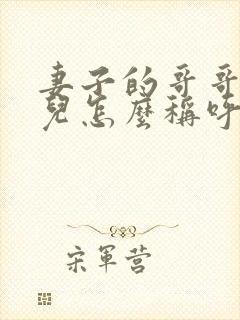 妻子的哥哥
兒怎麼稱呼
宋軍营